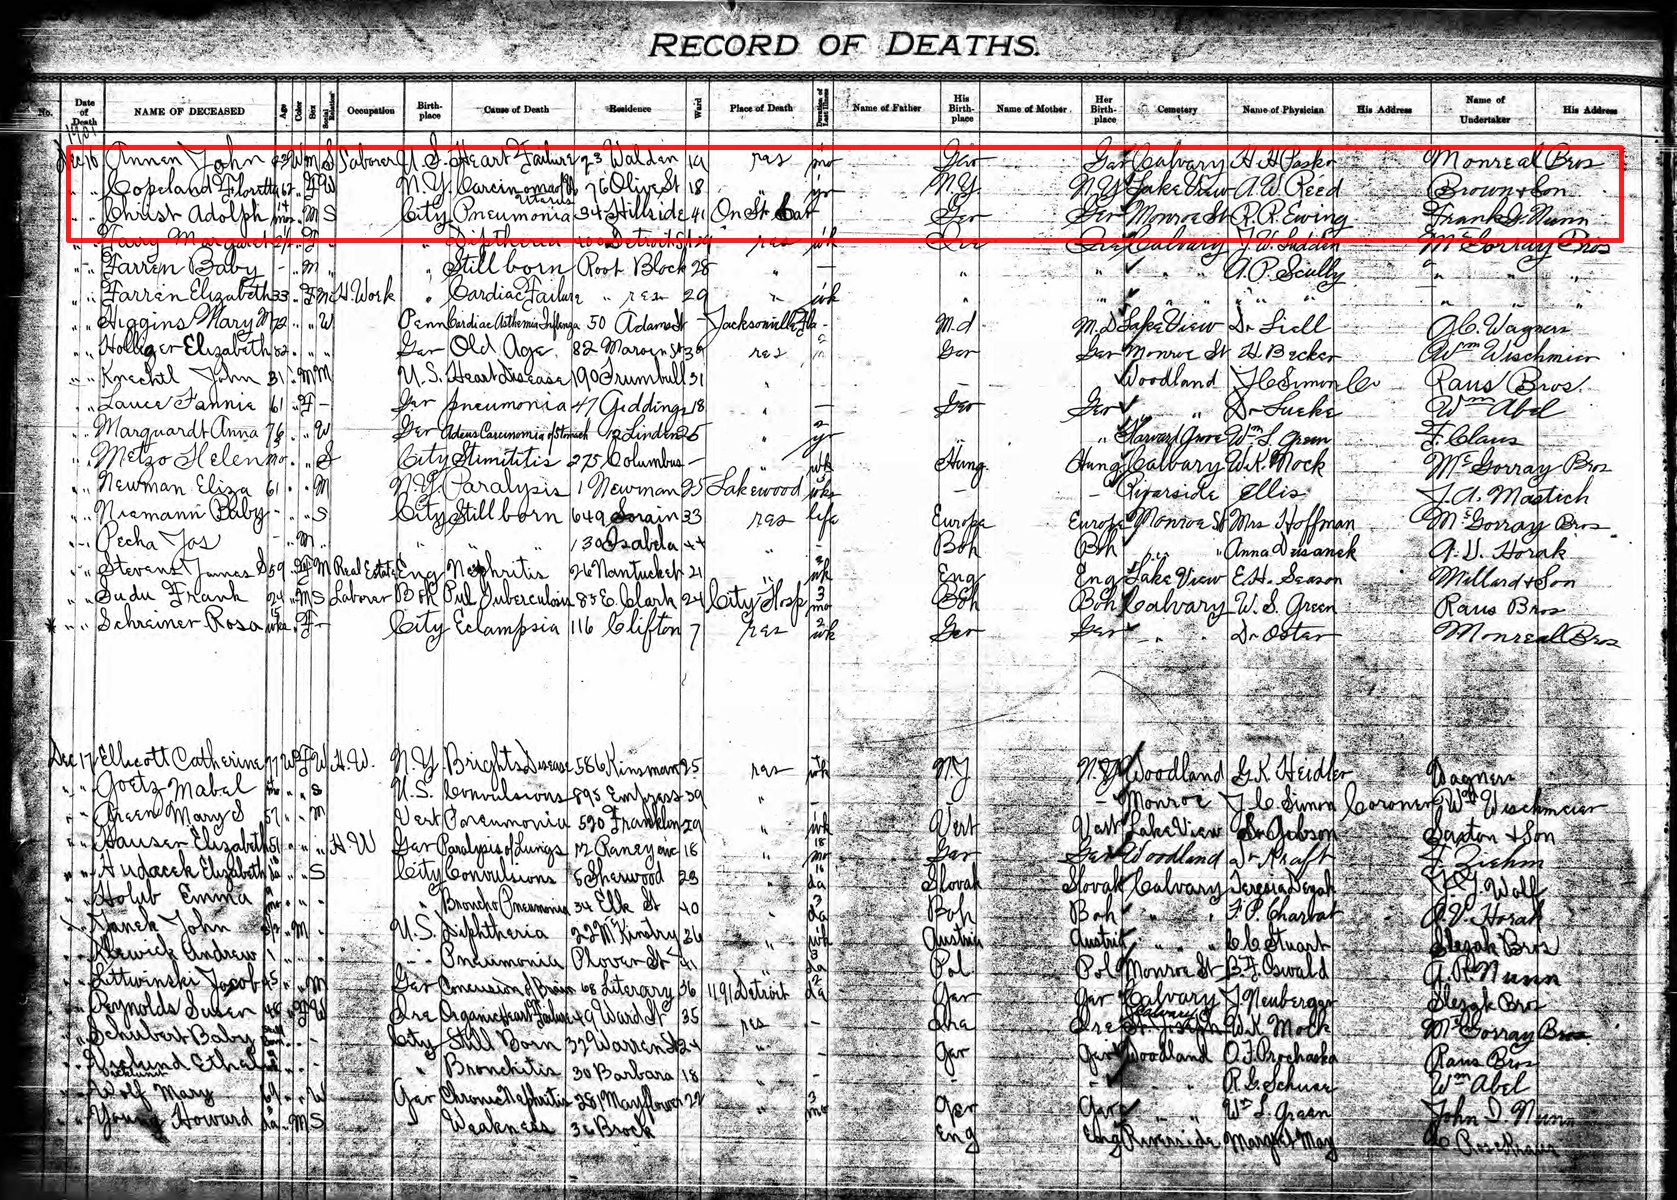 RECORD OF DEATHS.
No. Date of Death NAME OF DECEASED Age Color Sex Social Relation Occupation Birth-place Cause of Death Residence Ward Place of Death Duration of Last Illness Name of Father His Birth-place Name of Mother Her Birth-place Cemetery Name of Physician His Address Name of Undertaker His Address
Dec 16 Annen John W M S Laborer U.S. Heart Failure 73 Walden 19 res mo Ger Ger Calvary H. H. Monreal Bros
" " Copeland 62 " F W N.Y. Carcinoma of Uterus 76 Olive St 18 " yr N.Y. N.Y. Lake View A.W. Reed Brown & Son
" " Christ Adolph 14 mo " M S City Pneumonia 34 Hillside 41 On St Car Ger Ger Monroe St R.R. Ewing Frank J. Nunn
" " Margaret " F " Diptheria Detroit St res wk Ire Ire Calvary McGorray Bros
" " Farren Baby - " M " Still born Root Block 28 " - " " " A.P. Scully " "
" " Farren Elizabeth 33 " F M H. Work " Cardiac Failure " res 29 " wk " " " " " " " "
" " Higgins Mary M 72 " " W Penn Cardiac Asthemia Inflenga 50 Adams St - Jacksonville Fla - M.d M.D Lake View Dr Liell A.C. Wagner
" " Elizabeth 82 " " " Ger Old Age 82 39 res Ger Ger Monroe St H. Becker Wm Wischmier
" " Knechtl John 31 " M M U.S. Heart disease 190 Trumbull 31 " Woodland J.C. Simon Co Raus Bros.
" " Lauce Fannie 61 " F - Ger pneumonia 47 Giddings 18 " - Ger Ger " Dr Wm Abel
" " Marquardt Anna 76 " " W Ger Carcinomia of Stomach Linden 25 " 2 yr " Harvard Grove Wm L. Green F. Claus
" " Metzo Helen mo " " S City Stimititis 275 Columbus - " wk Hung. Hung Calvary W.K. Mock McGorray Bros
" " Newman Eliza 61 " " M N.Y. Paralysis 1 Newman 25 Lakewood wks - - Riverside Ellis J.A. Mastich
" " Niemann Baby - " " S City Still born 649 Lorain 33 res life Europe Europe Monroe St Mrs Hoffman McGorray Bros
" " Pecha Jos - " M " " " 130 Isabela 44 " Boh Boh " " Anna Dusanek A. V. Horak
" " Stevens James S 59 " M Real Estate Eng Nephritis 26 Nantucket 21 " wk Eng Eng Lake View E.H. Season Millard & Son
" " Sudu Frank 24 " M S Laborer Boh Pul Tuberculosis 85 E. Clark 24 City Hosp 3 mo Boh Boh Calvary W. S. Green Raus Bros
" " Schreiner Rosa wks " F - City Eclampsia 116 Clifton 7 res 2 wk Ger Ger " " Dr Oster Monreal Bros
Dec 17 Ellicott Catherine 77 W F W H.W. N.Y. Brights Disease 586 Kinsman 25 res wk N.Y N.Y Woodland G.K. Heidler Wagner
" " Goetz Mabel " " S U.S. Convulsions 895 Empress 39 " - - Monroe J.C. Simon Coroner Wm Wischmeier
" " Green Mary S 57 " " M Vert Pneumonia 520 Franklin 29 " wk Vert Vert Lake View Dr Gibson Saxton & Son
" " Hauser Elizabeth 51 " " " H W Ger Paralysis of Lungs 72 Raney ave 18 " 18 mo Ger Ger Woodland Dr Kraft J Ziehm
" " Hudacek Elizabeth da " " S City Convulsions Sherwood 23 " da Slovak Slovak Calvary Teresia J.J. Wolf
" " Holub Emma mo " " " " Broncho Pneumonia 34 Elk St 40 " 3 da Boh Boh " " F.P. Charbat A.V. Horak
" " Janek John " M " U.S. Diphtheria 22 McKinstry 36 " wk Austria Austria " " C.C. Stuart Slezak Bros
" " Andrew 1 " " " " Pneumonia Plover St 41 " 3 da Pol Pol Monroe St B.F. Oswald Nunn
" " Littwinski Jacob 45 " " M Ger Concusion of Brain 68 Literary 36 1191 Detroit 2 da Ger Ger Calvary J. Neuberger Slezak Bros
" " Reynolds Susan " F W Ire Organic Heart Failure 49 Ward St 35 res - Ire Ire Calvary W.K. Mock McGorray Bros
" " Schubert Baby " " - City Still Born 37 Warren St 24 " Ger Ger Woodland O.F. Prochaska Raus Bros
" " Ethel " " - " Bronchitis 30 Barbara 18 " - - R.G. Schuse Wm Abel
" " Wolf Mary " " W Ger Chronic Nephritis 281 Mayflower 22 " 3 mo Ger Ger " " Wm L. Green John I. Nunn
" " Young Howard da " M S " Weakness 36 Brock Eng Eng Riverside Margret May